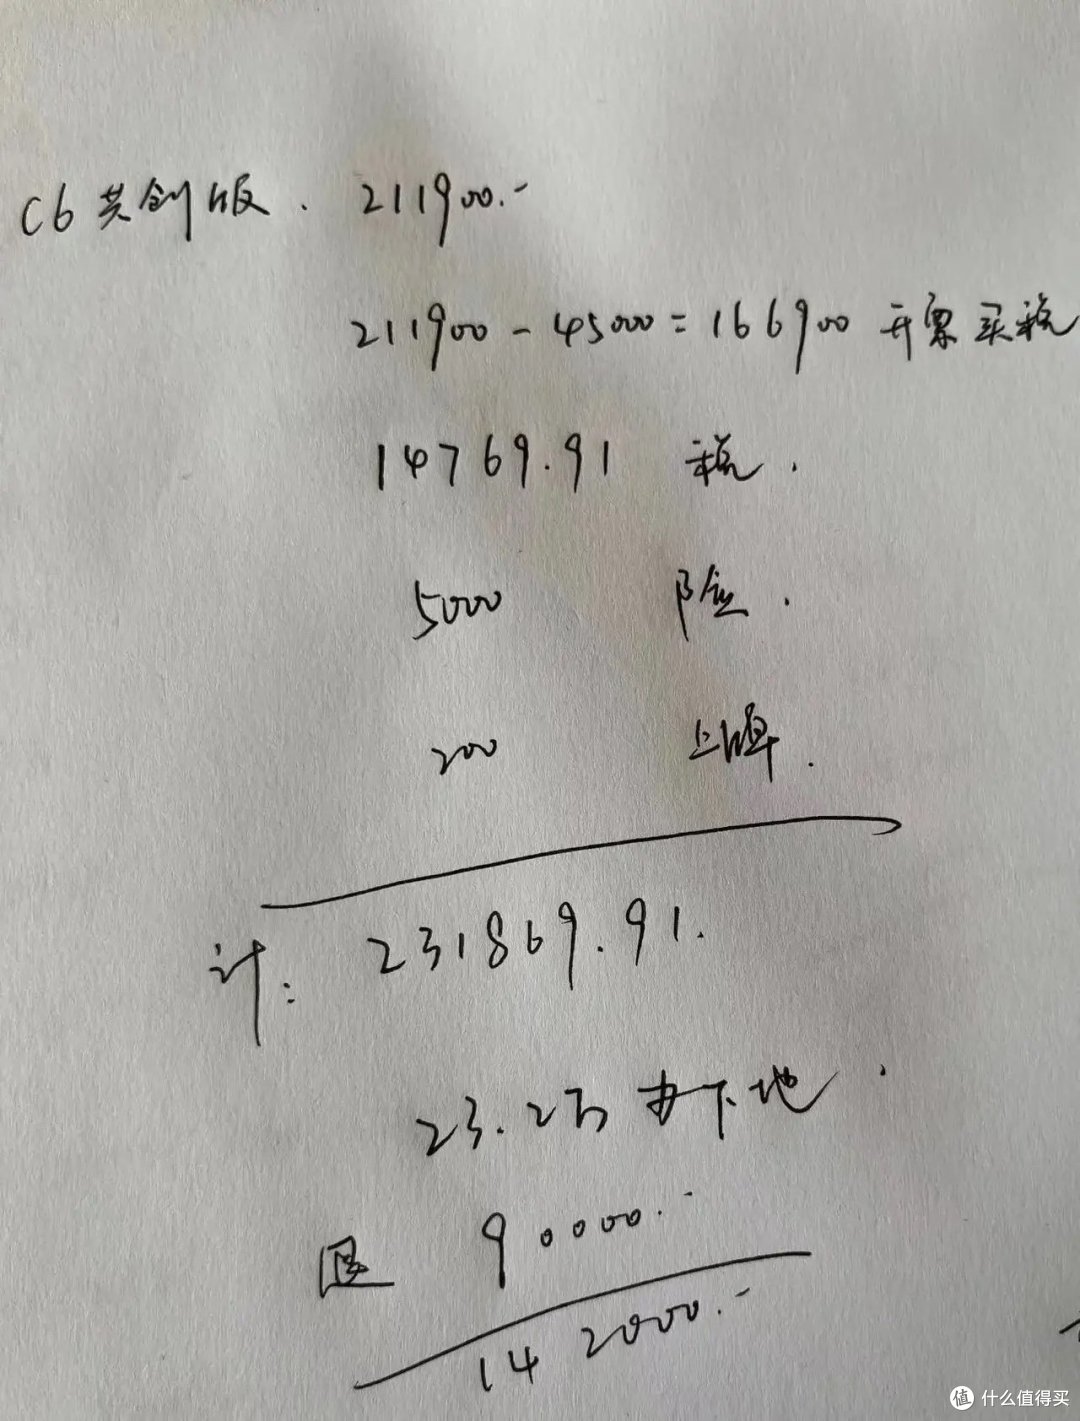 C6共创版. 211900.-
211900-45000=166900 开票买税
14769.91 税.
5000 险.
200 上牌.
计: 231869.91.
23.2万办下地.
退 90000.-
142000.-
值 什么值得买